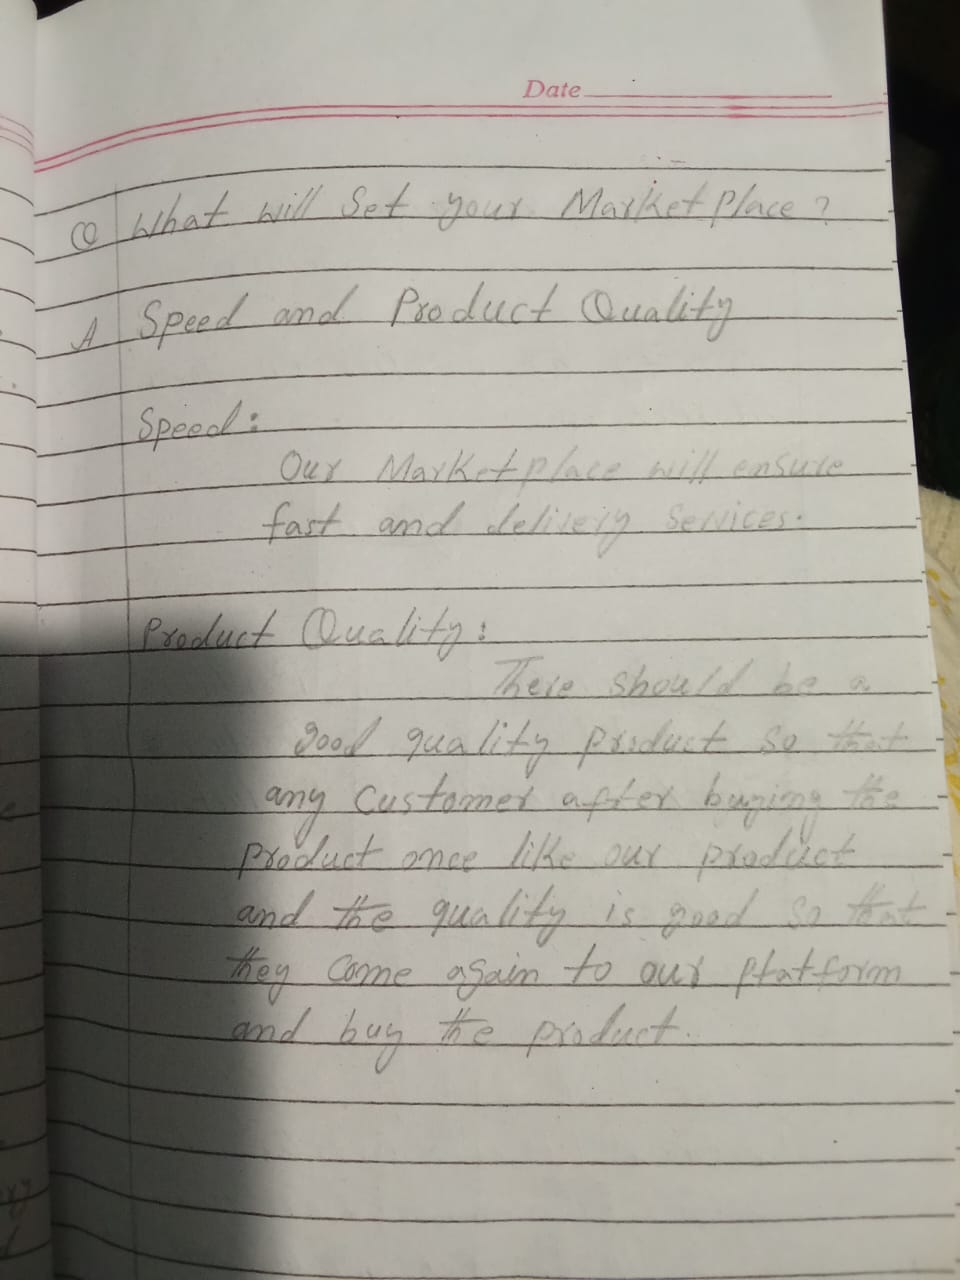 Date
Q What will Set your Marketplace?
A Speed and Product Quality
Speed:
Our Marketplace will ensure
fast and delivery Services.
Product Quality:
There should be a
good quality product so that
any Customer after buying the
product once like our product
and the quality is good so that
they Come again to our platform
and buy the product.